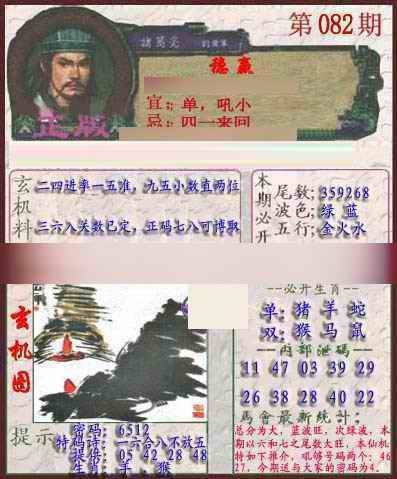 第082期
諸葛亮
稳赢
宜:单,吼小
忌:四一来回
正版
玄机料
二四进季一五准,九五小数直两位
三六八关数已定,正码七八可博取
本期必开
尾数:359268
波色:绿 蓝
五行:金火水
玄机图
必开生肖
单:猪羊蛇
双:猴马鼠
内部泄码
11 47 03 39 29
26 38 28 40 22
馬會最新統計:
总分为大,蓝波旺,次绿波,本
期以六和七之尾数大旺,本仙机
特如下推介,吼够号码两个:46
27,今期送与大家的密码为4.
提示
密码:6512
特码诗:一六合八不放五
提倍:05 42 28 48
生肖:羊、猴